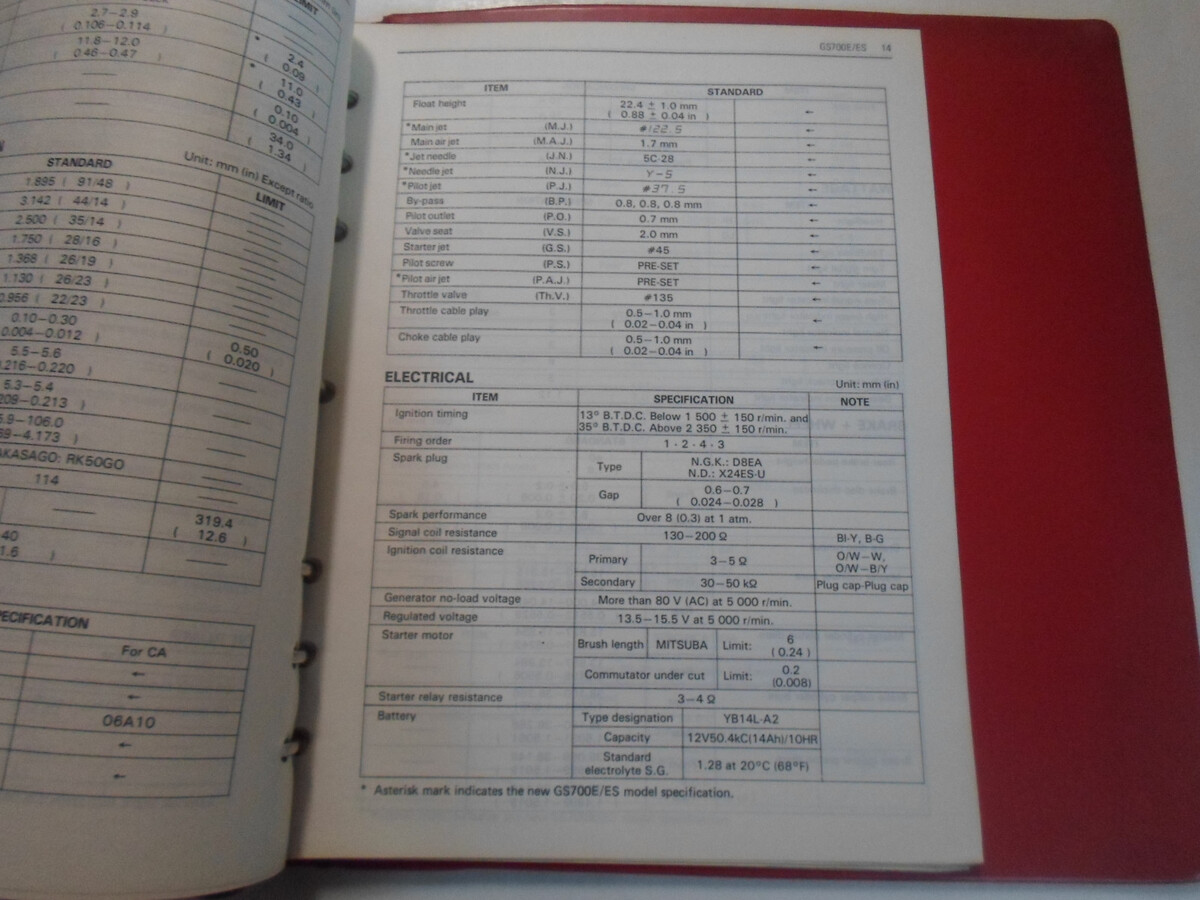 LIMIT
2.7–2.9
( 0.106–0.114 )
11.8–12.0
( 0.46–0.47 )
* 2.4
( 0.09 )
* 11.0
( 0.43 )
0.10
( 0.004 )
34.0
( 1.34 )
Unit: mm (in) Except ratio
STANDARD
LIMIT
1.895 ( 91/48 )
3.142 ( 44/14 )
2.500 ( 35/14 )
1.750 ( 28/16 )
1.368 ( 26/19 )
1.130 ( 26/23 )
0.956 ( 22/23 )
0.10–0.30
0.004–0.012 )
0.50
( 0.020 )
5.5–5.6
.216–0.220 )
5.3–5.4
209–0.213 )
5.9–106.0
69–4.173 )
AKASAGO: RK50GO
114
319.4
( 12.6 )
40
1.6 )
PECIFICATION
For CA
←
←
06A10
←
←
GS700E/ES 14
ITEM STANDARD
Float height 22.4 ± 1.0 mm
( 0.88 ± 0.04 in ) ←
*Main jet (M.J.) #122.5 ←
Main air jet (M.A.J.) 1.7 mm ←
*Jet needle (J.N.) 5C-28 ←
*Needle jet (N.J.) Y-5 ←
*Pilot jet (P.J.) #37.5 ←
By-pass (B.P.) 0.8, 0.8, 0.8 mm ←
Pilot outlet (P.O.) 0.7 mm ←
Valve seat (V.S.) 2.0 mm ←
Starter jet (G.S.) #45 ←
Pilot screw (P.S.) PRE-SET ←
*Pilot air jet (P.A.J.) PRE-SET ←
Throttle valve (Th.V.) #135 ←
Throttle cable play 0.5–1.0 mm
( 0.02–0.04 in ) ←
Choke cable play 0.5–1.0 mm
( 0.02–0.04 in ) ←
ELECTRICAL
Unit: mm (in)
ITEM SPECIFICATION NOTE
Ignition timing 13° B.T.D.C. Below 1 500 ± 150 r/min. and
35° B.T.D.C. Above 2 350 ± 150 r/min.
Firing order 1 · 2 · 4 · 3
Spark plug Type N.G.K.: D8EA
N.D.: X24ES-U
Gap 0.6–0.7
( 0.024–0.028 )
Spark performance Over 8 (0.3) at 1 atm.
Signal coil resistance 130–200 Ω Bl-Y, B-G
Ignition coil resistance Primary 3–5 Ω O/W–W,
O/W–B/Y
Secondary 30–50 kΩ Plug cap-Plug cap
Generator no-load voltage More than 80 V (AC) at 5 000 r/min.
Regulated voltage 13.5–15.5 V at 5 000 r/min.
Starter motor Brush length MITSUBA Limit: 6
( 0.24 )
Commutator under cut Limit: 0.2
(0.008)
Starter relay resistance 3–4 Ω
Battery Type designation YB14L-A2
Capacity 12V50.4kC(14Ah)/10HR
Standard
electrolyte S.G. 1.28 at 20°C (68°F)
* Asterisk mark indicates the new GS700E/ES model specification.